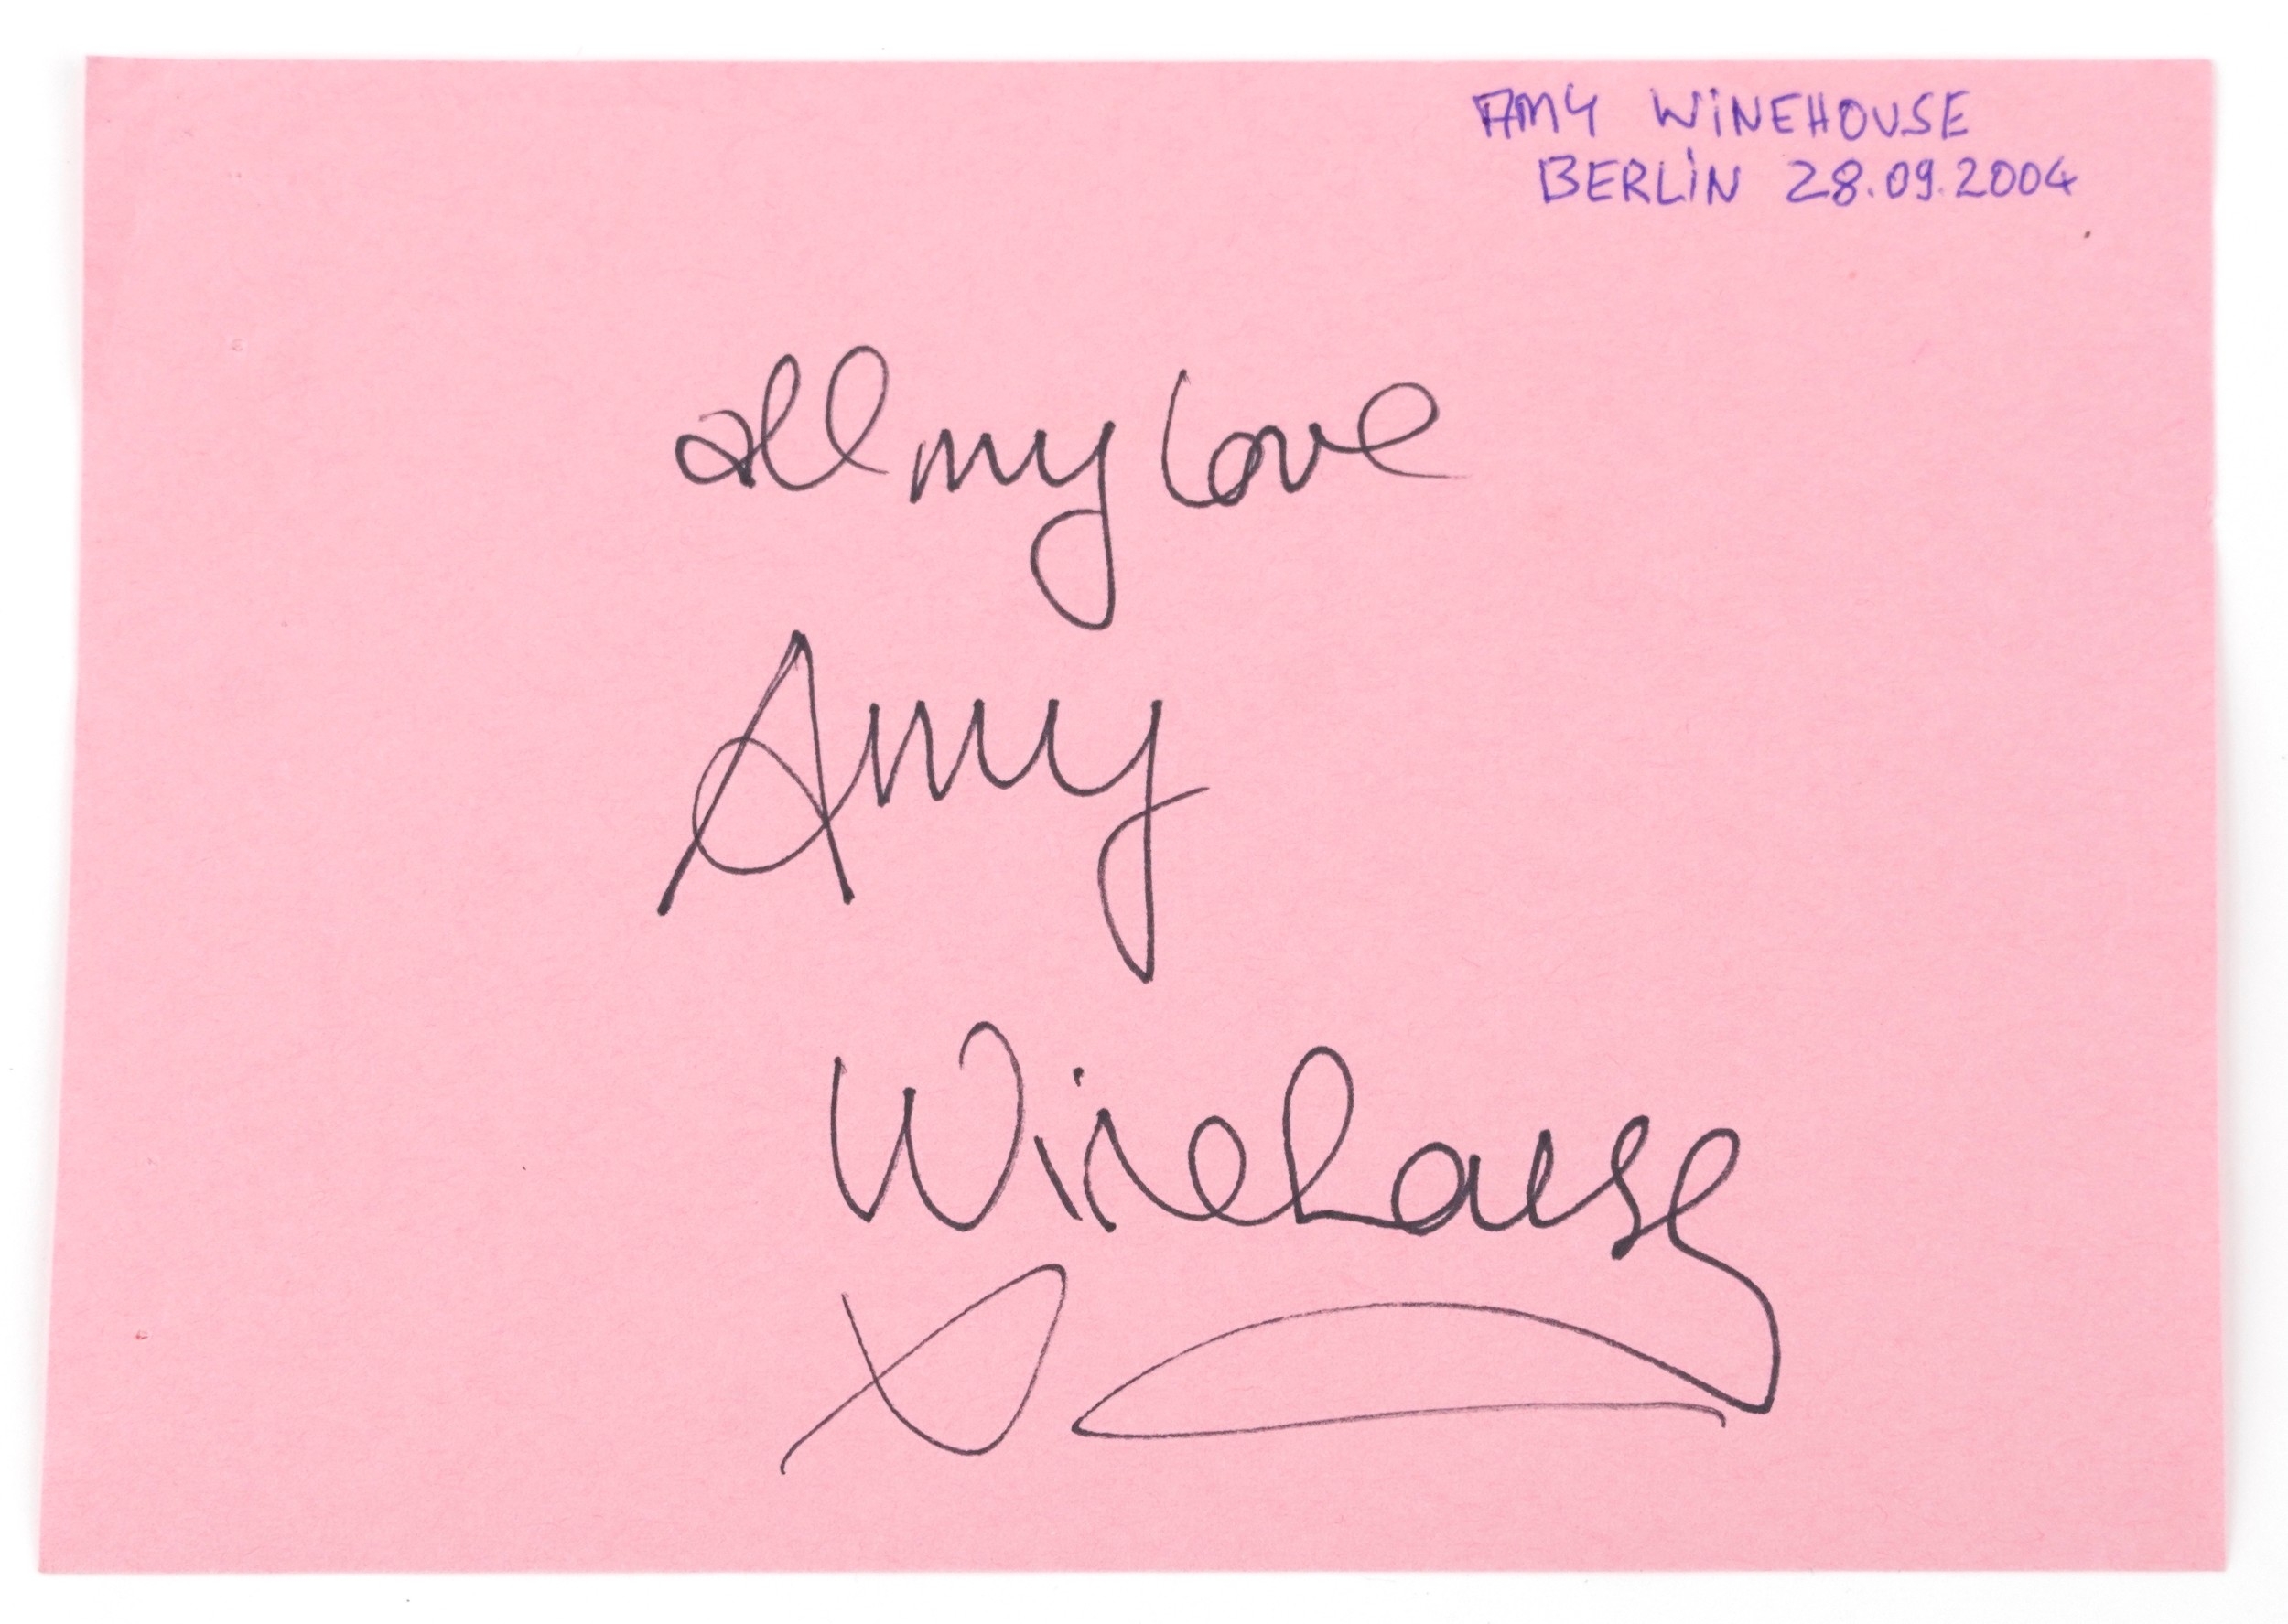 AMY WINEHOUSE
BERLIN 28.09.2004
all my love
Amy
Winehouse
x